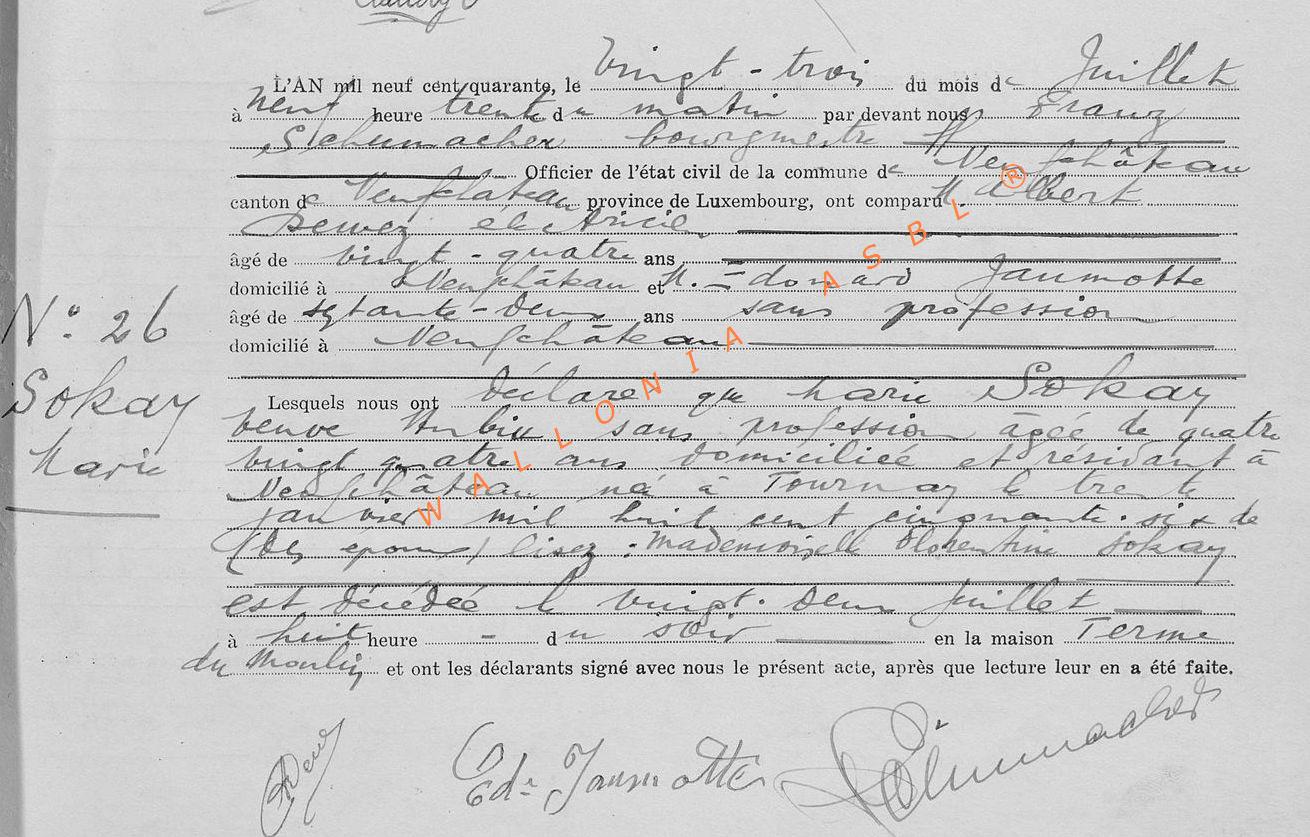 L'AN mil neuf cent quarante, le Vingt-trois du mois de Juillet
à neuf heure trente du matin par devant nous Franz
Schumacher bourgmestre
Officier de l'état civil de la commune de Neufchâteau
canton de Neufchâteau province de Luxembourg, ont comparu M. Albert
Dewez électricien
âgé de vingt-quatre ans
domicilié à Neufchâteau et M. Edouard Jaumotte
âgé de septante-deux ans sans profession
domicilié à Neufchâteau
N° 26
Sokay
Marie
Lesquels nous ont déclaré que Marie Sokay
veuve sans profession âgée de quatre
vingt quatre ans domiciliée et résidant à
Neufchâteau né à Tournay le trente
janvier mil huit cent cinquante-six de
(Des epoux) lisez : Mademoiselle Florentine Sokay
est décédée le vingt-deux Juillet
à huit heure - du soir en la maison Terme
du Moulin et ont les déclarants signé avec nous le présent acte, après que lecture leur en a été faite.
Edr Jaumotte
Schumacher
WALLONIA ASBL ®